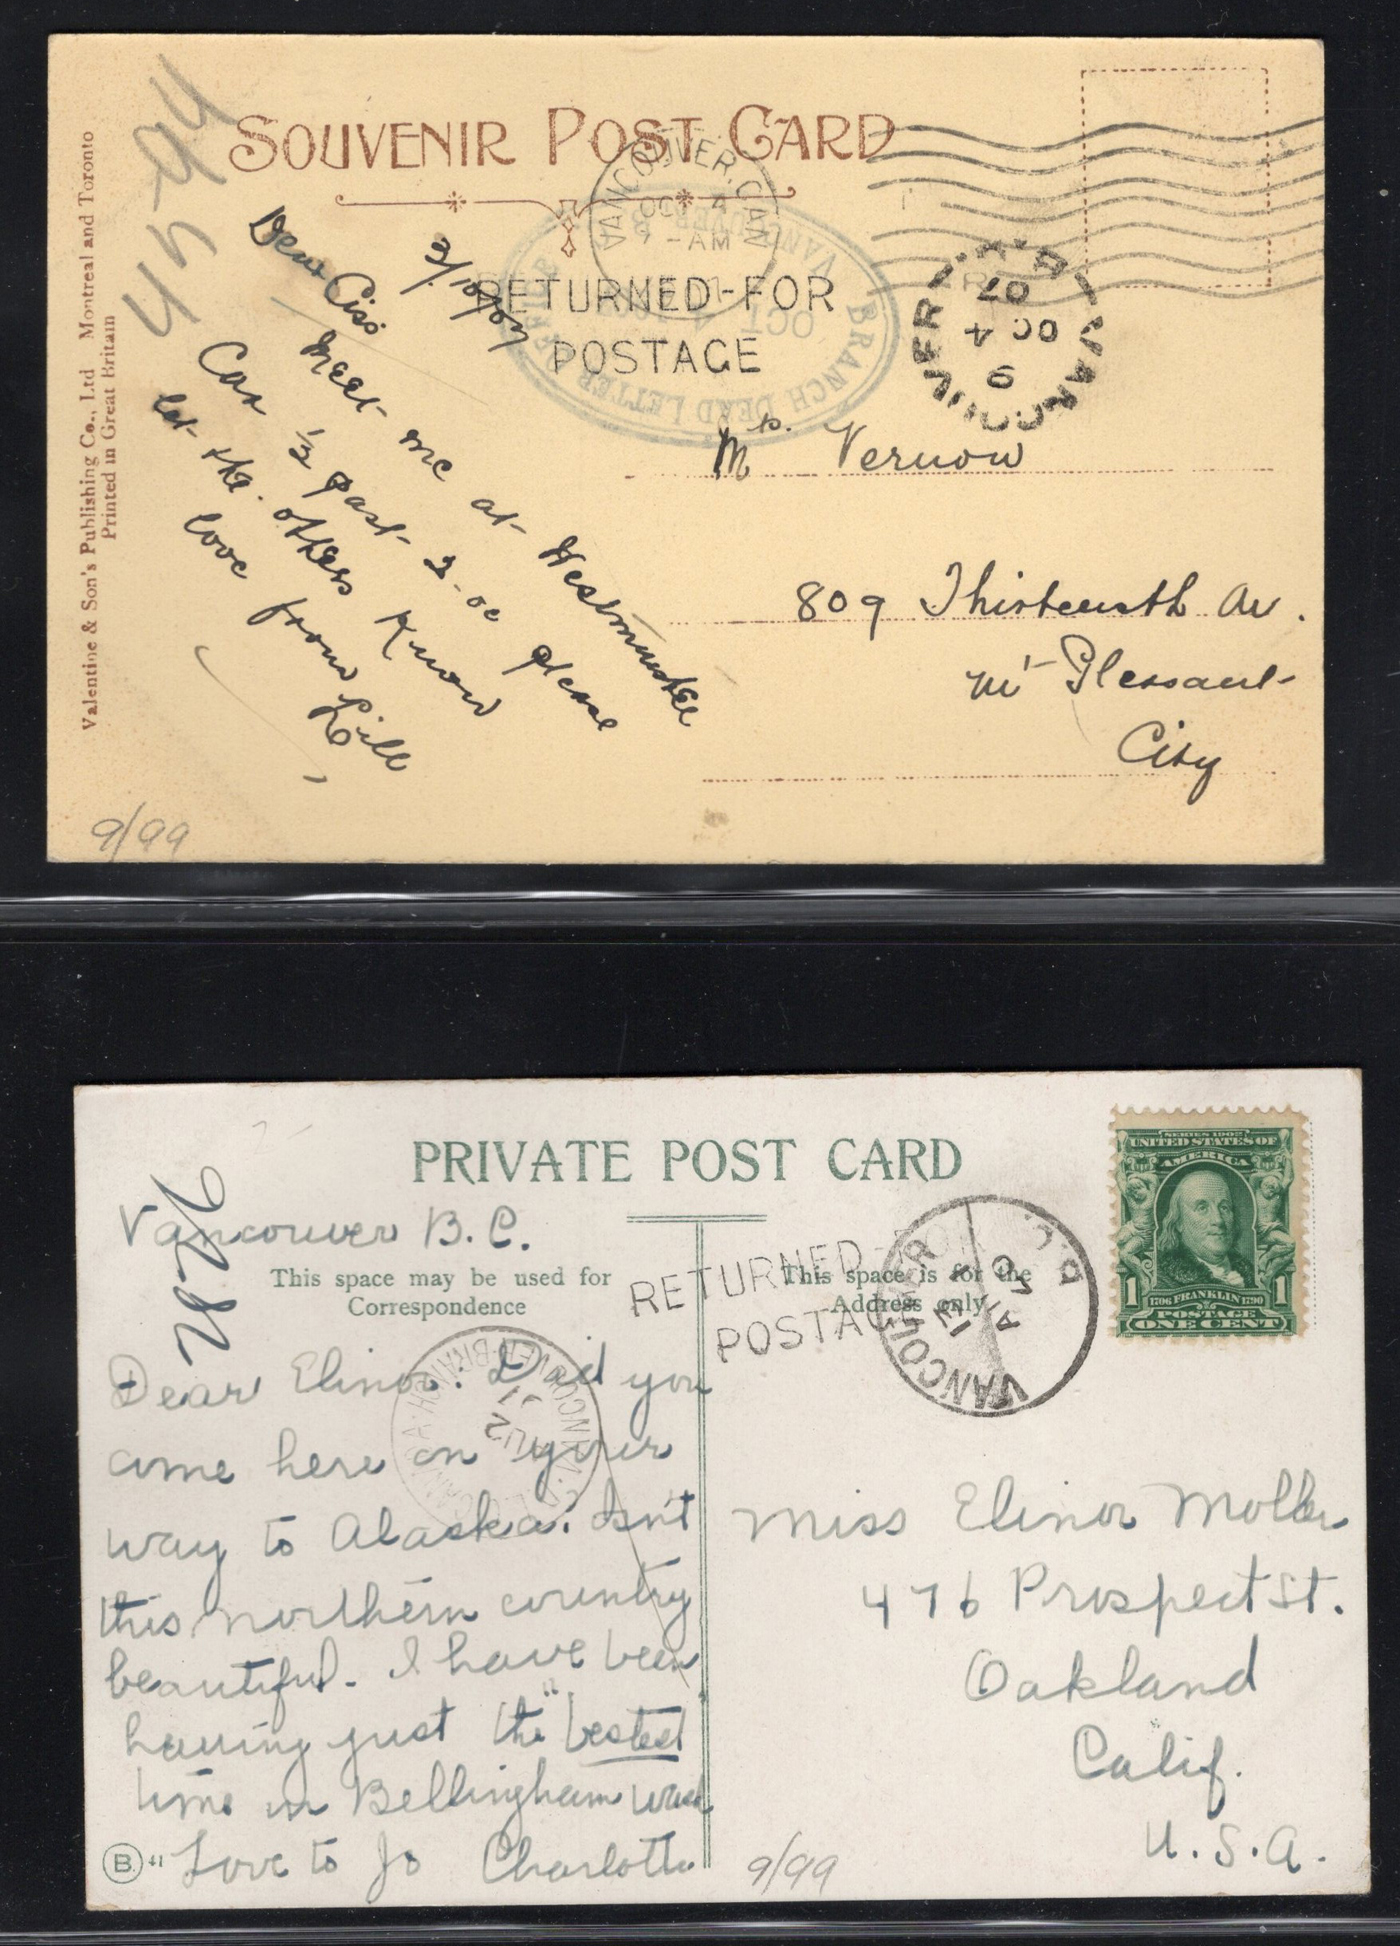 SOUVENIR POST CARD
Valentine & Son's Publishing Co., Ltd Montreal and Toronto
Printed in Great Britain
45-94
VANCOUVER, CAN
OCT 4
7-AM
RETURNED-FOR
POSTAGE
BRANCH DEAD LETTER
VANCOUVER B
OCT 4
VANCOUVER
9
OC 4
07
3/10/07
Dear Ciss
Meet me at Westminster
Car ½ past 2-oc please
let the others know
love from Lill
Mrs. Vernon
809 Thirteenth Av.
Mt Pleasant
City
9/99
PRIVATE POST CARD
SERIES 1902
UNITED STATES OF
AMERICA
1706 FRANKLIN 1790
POSTAGE
1 ONE CENT 1
Vancouver B.C.
This space may be used for
Correspondence
This space is for the
Address only
RETURNED-FOR
POSTAGE
VANCOUVER B.C.
Dear Elinor: Did you
come here on your
way to Alaska? Isn't
this northern country
beautiful. I have been
having just the "bestest"
time in Bellingham
Love to Jo Charlotte
Miss Elinor Moller
476 Prospect St.
Oakland
Calif.
U.S.A.
B. 41
9/99